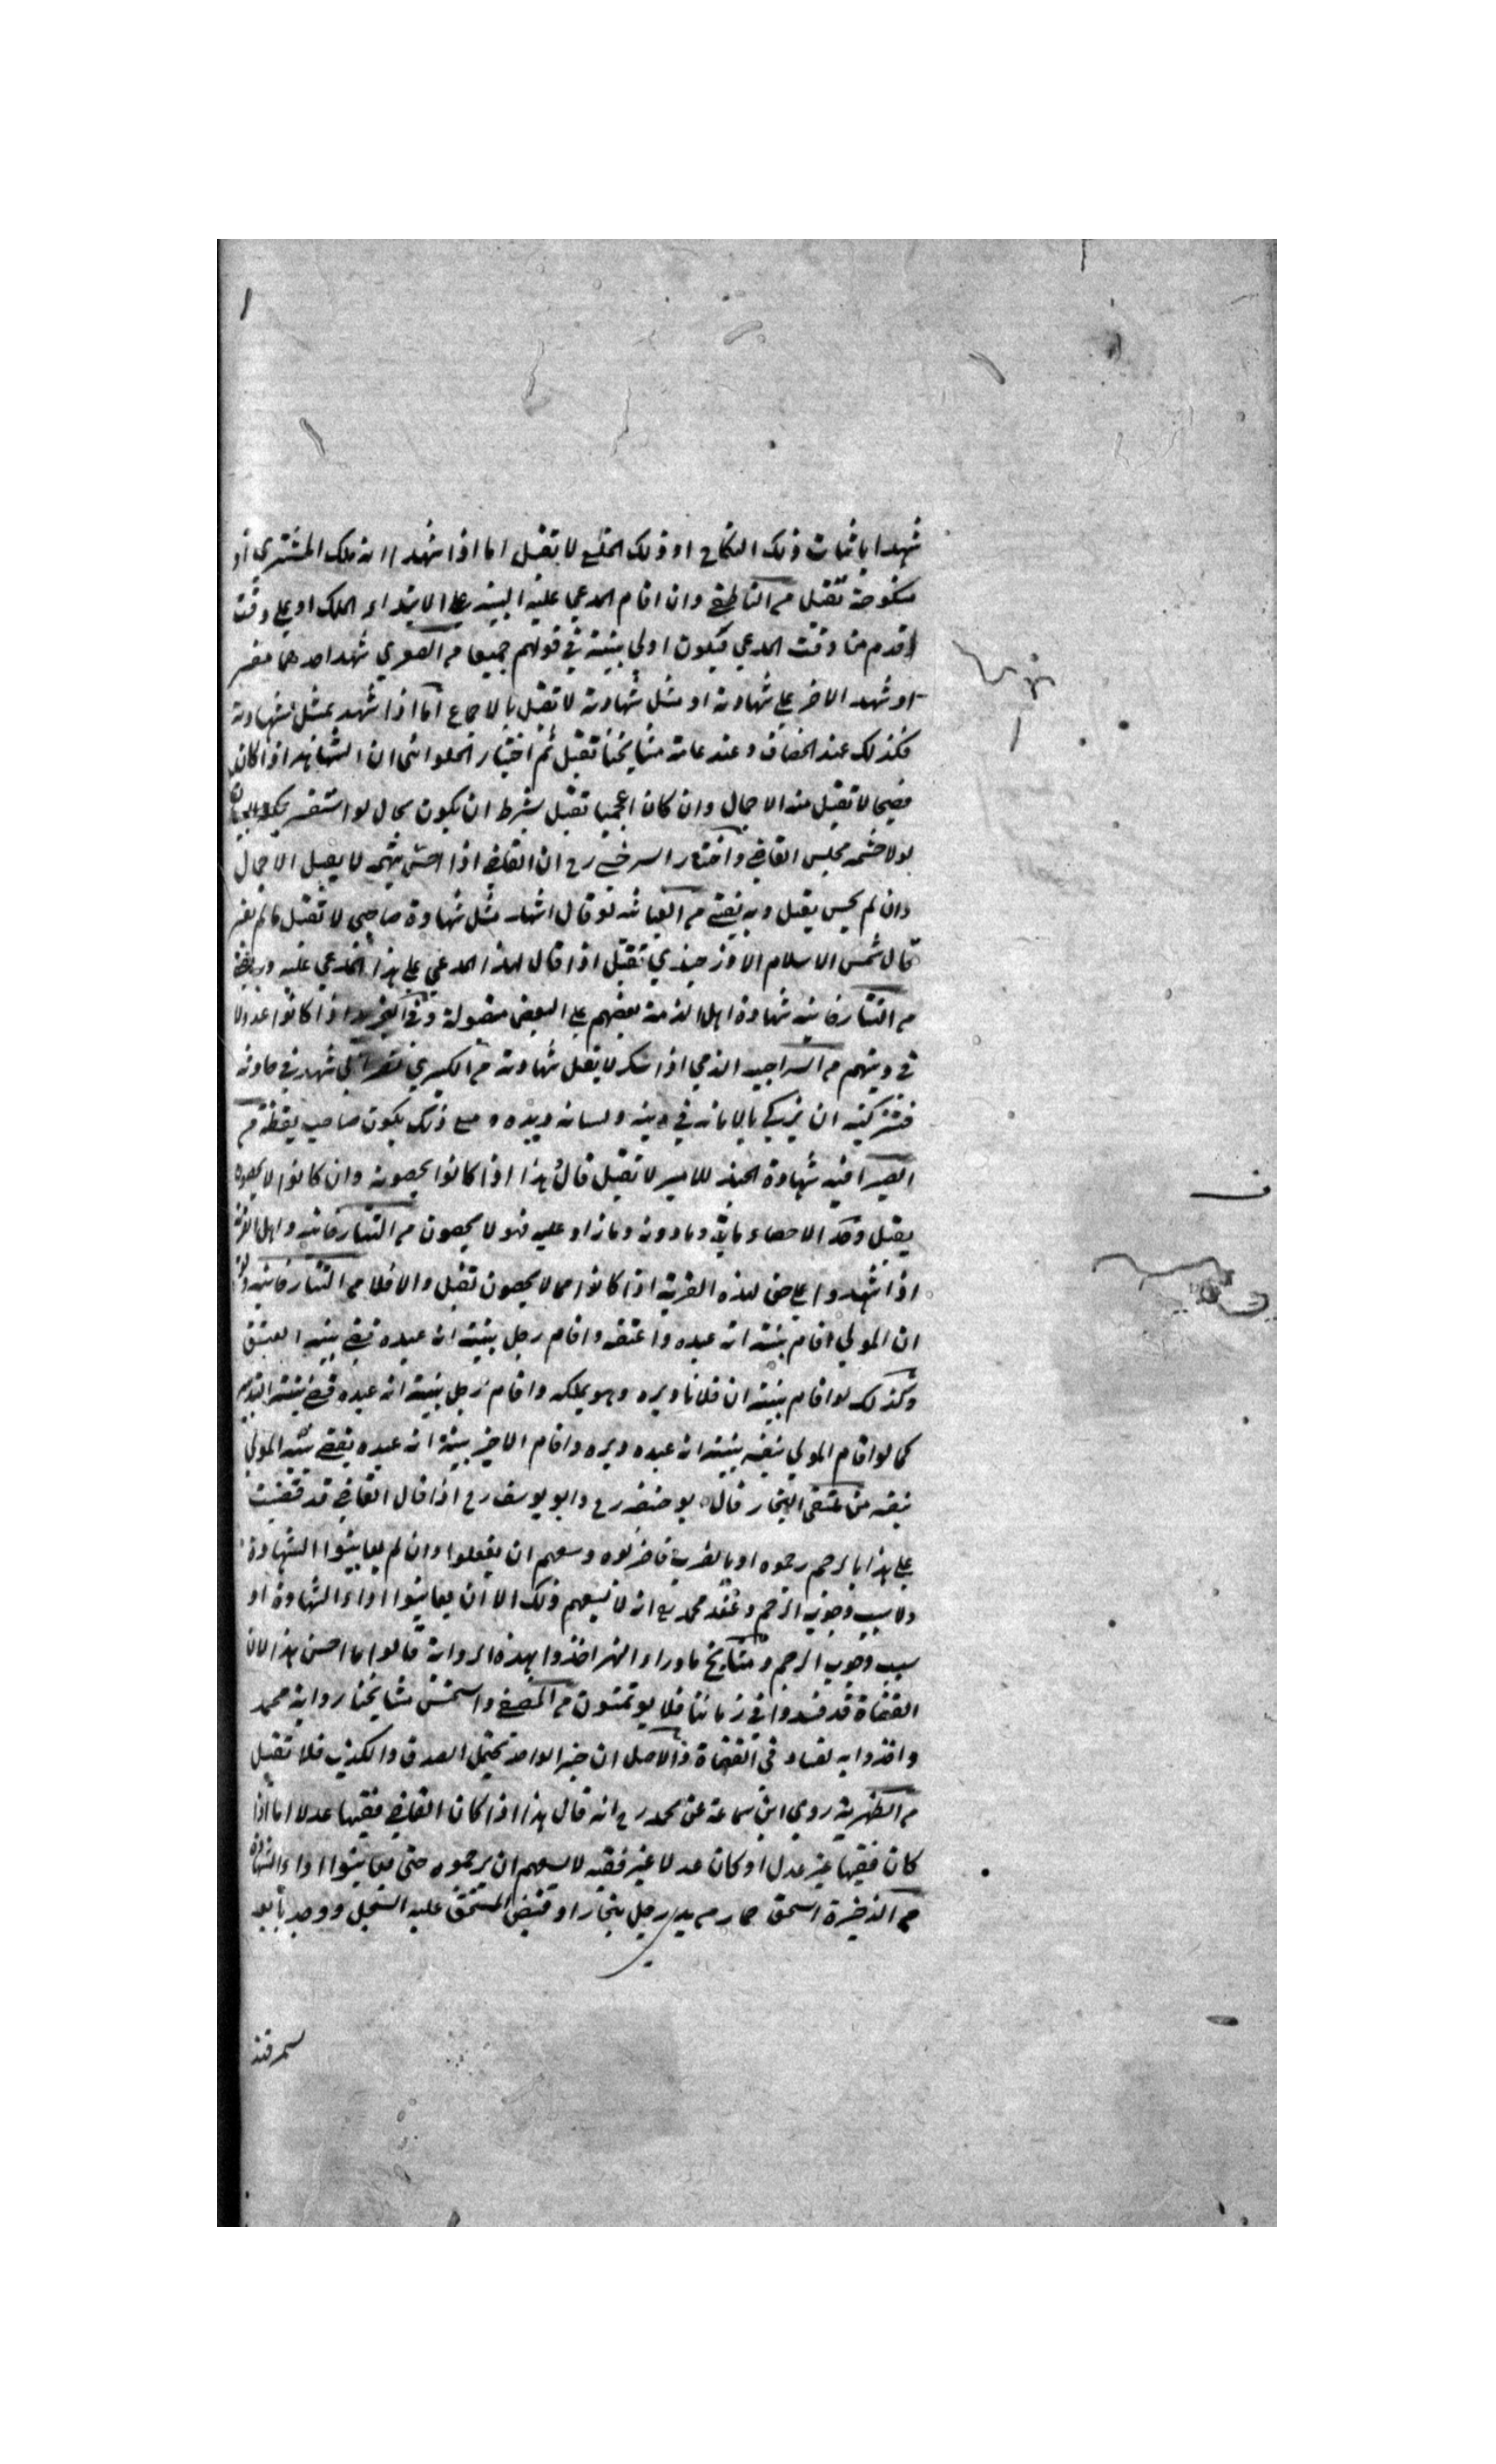 شهدا باثبات ذلك النكاح او ذلك الخلع لا تقبل اما اذا شهدا انه ملك المشتري او
منكوحة تقبل م الناطفي وان اقام المدعي عليه البينه علي الابتداء الملك او علي وقت
اقدم من وقت المدعي فيكون اولي بينة في قولهم جميعا م الصغري شهد احدهما مفسر
او شهد الاخر علي شهادته او مثل شهادته لا تقبل بالاجماع اما اذا شهد بمثل شهادته
فكذلك عند الخصاف وعند عامة مشايخنا تقبل ثم اختيار الحلواني ان الشاهد اذا كان
فصيحا لا تقبل منه الاجمال وان كان اعجميا تقبل بشرط ان يكون بحال لو استفسر
لولا حشمه مجلس القاضي واختار السرخسي رح ان القاضي اذا احس بتهمه لا يقبل الاجمال
وان لم يحس يقبل وبه يفتي م الغياثيه لو قال اشهد مثل شهادة صاحبي لا تقبل مالم يفسر
قال شمس الاسلام الاوزجندي تقبل اذا قال لهذا المدعي علي هذا المدعي عليه وبه يفتي
م التتارخانيه شهادة اهل الذمة بعضهم علي البعض مقبولة اذا كانوا عدولا
في دينهم م السراجيه الذمي اذا سكر لا يقبل شهادته م الكبري نصراني شهد في حادثه
فتزكيته ان يزكي بالامانه في دينه ولسانه ويده ومع ذلك يكون صاحب يقظة م
الصيرافيه شهادة الجند للامير لا تقبل قال هذا اذا كانوا يحصون وان كانوا لا يحصون
يقبل وحد الاحصاء مائة ومادونه ومازاد عليه فهو لا يحصون م التتارخانيه واهل القرية
اذا شهدوا علي حق لهذه القرية اذا كانوا مما لا يحصون تقبل والا فلا م التتارخانيه ولو
ان المولي اقام بينة انه عبده واعتقه واقام رجل بينة انه عبده قضي ببينه العتق
وكذلك لو اقام بينة ان فلانا دبره وهو يملكه واقام رجل بينة انه عبده قضي ببينة التدبير
كما لو اقام المولي نفسه بينة انه عبده دبره واقام الاخر بينة انه عبده يقضي ببينه المولي
نفسه من عتقي البخار قال ابو حنيفه رح وابو يوسف رح اذا قال القاضي قد قضيت
علي هذا بالرجم رجموه او بالضرب فاضربوه وسعهم ان يفعلوا وان لم يعاينوا الشهادة
ولا سبب وجوب الرجم وعند محمد رح انه لا يسعهم ذلك الا ان يعاينوا اداء الشهادة او
سبب وجوب الرجم ومشايخ ماوراء النهر اخذوا بهذه الرواية قالوا ما احسن هذا لان
القضاة قد فسدوا في زماننا فلا يوتمنون م المصفي واستحسن مشايخنا رواية محمد
واخذوا به لفساد في القضاة والاصل ان خبر الواحد يحتمل الصدق والكذب فلا تقبل
م الظهرية روي ابن سماعة عن محمد رح انه قال هذا اذا كان القاضي فقيها عدلا اما اذا
كان فقيها غير عدل او كان عدلا غير فقيه لا يسعهم ان يرجموه حتي يعاينوا اداء الشهادة
م الذخيرة استحق حمار م يد رجل ببخارا وقبض المستحق عليه السجل ووجد بايعه
سمرقند